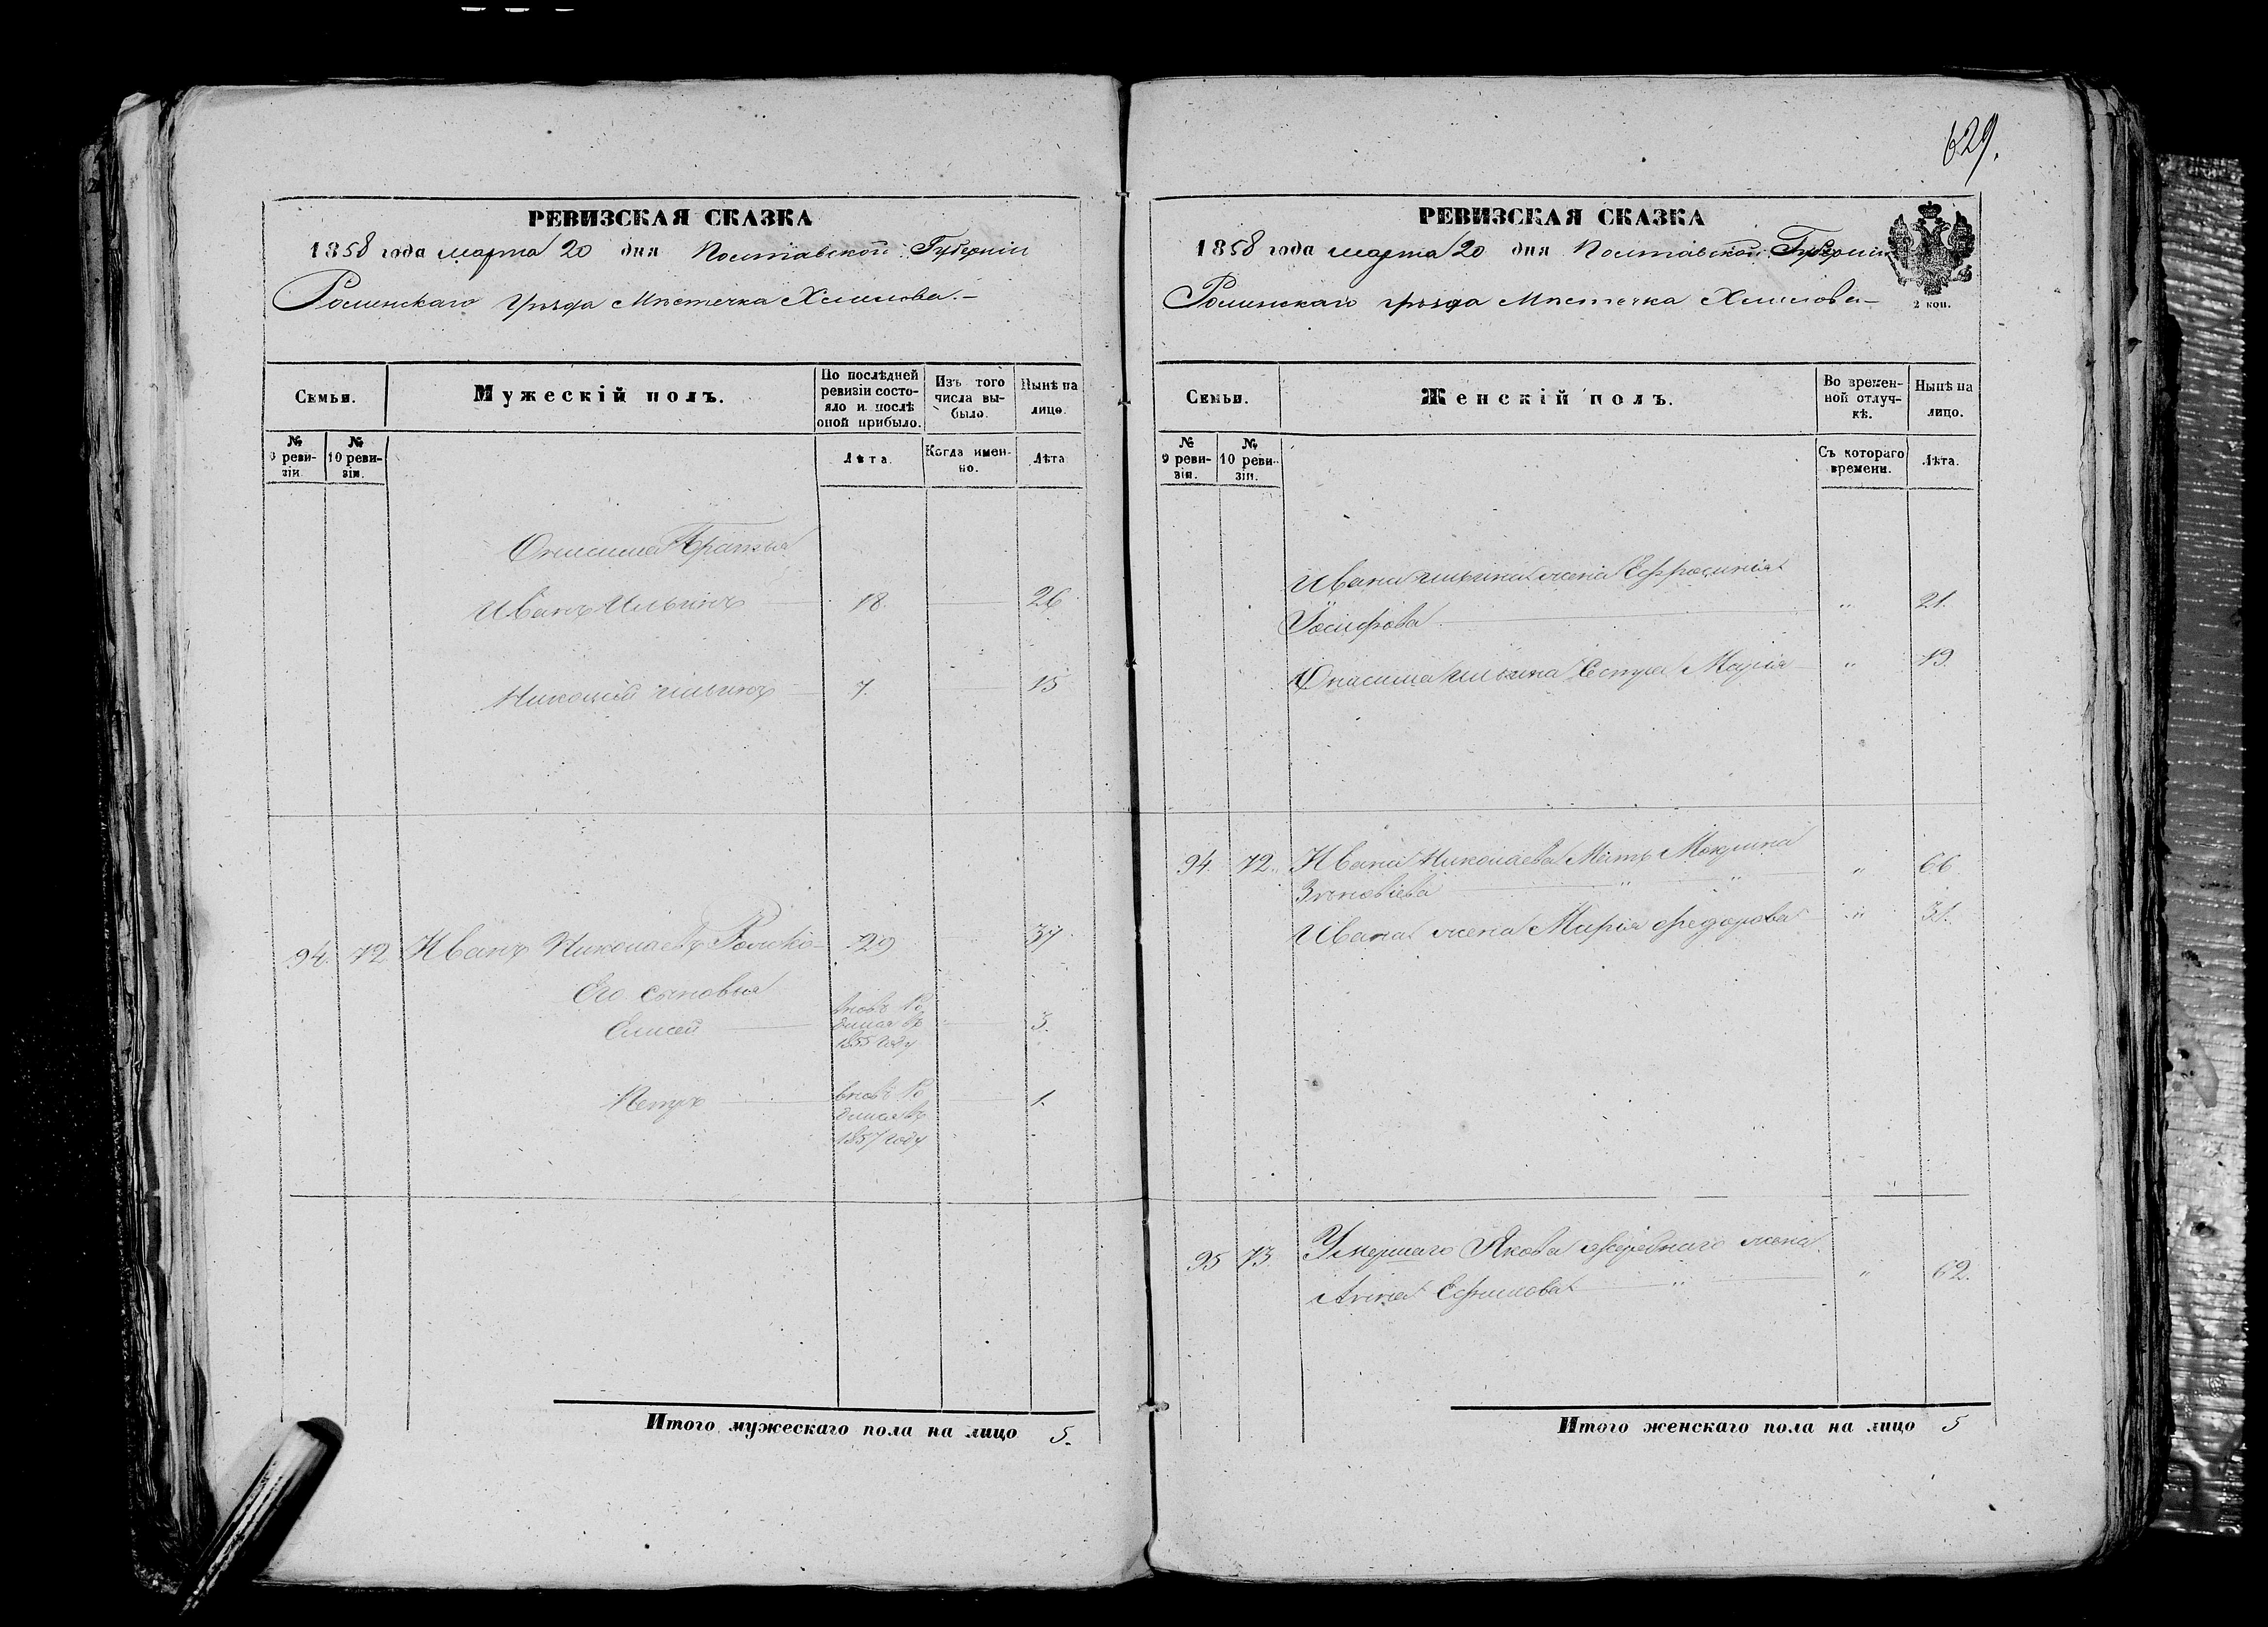 629.
РЕВИЗСКАЯ СКАЗКА
1858 года марта 20 дня Полтавской Губерніи
Роменскаго уѣзда Мѣстечка Хмелова.—
Семьи.
Мужескій полъ.
По послѣдней ревизіи состояло и послѣ оной прибыло.
Изъ того числа выбыло.
Нынѣ на лицо.
№ 9 ревизіи.
№ 10 ревизіи.
Лѣта.
Когда именно.
Лѣта
Онисима Братья
Иванъ Ильинъ 18. 26
Николай Ильинъ 7. 15
94. 72 Иванъ Николаевъ 29 37
Его сыновья
Елисей вновь Родился въ 1855 году 3.
Петръ вновь Родился въ 1857 году 1.
Итого мужескаго пола на лицо 5.
РЕВИЗСКАЯ СКАЗКА
1858 года марта 20 дня Полтавской Губерніи
Роменскаго уѣзда Мѣстечка Хмелова—
2 коп.
Семьи.
Женскій полъ.
Во временной отлучкѣ.
Нынѣ на лицо.
№ 9 ревизіи.
№ 10 ревизіи.
Съ котораго времени.
Лѣта.
Ивана Ильина жена Ефросинія
Іосифова " 21.
Онисима Ильина Сестра Марія " 19.
94. 72. Ивана Николаева Мать Мокрина
Зѣновіева " 66
Ивана жена Марія Федорова " 31.
95 73. Умершаго Якова жена
Анна Ефимова " 62.
Итого женскаго пола на лицо 5